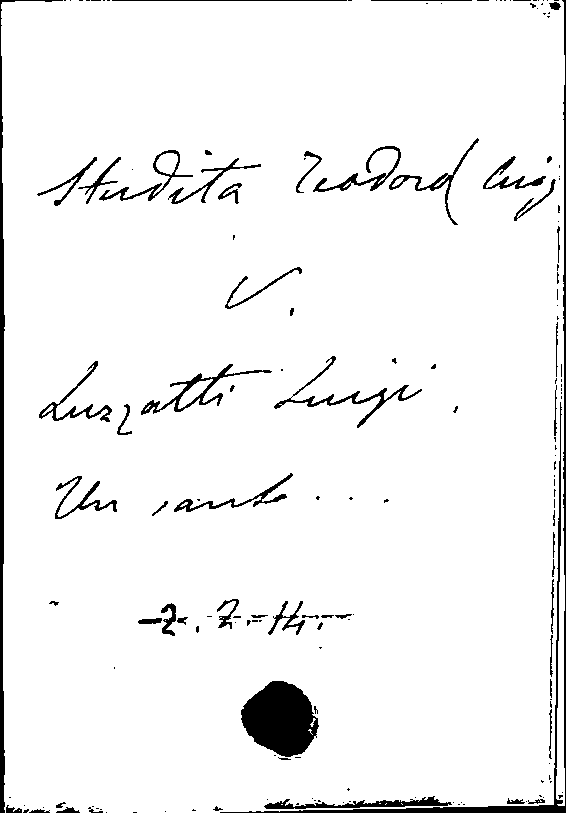 Studita Teodoro (
V.
Luzzatti Luigi.
Un santo ...
2. Z. H.